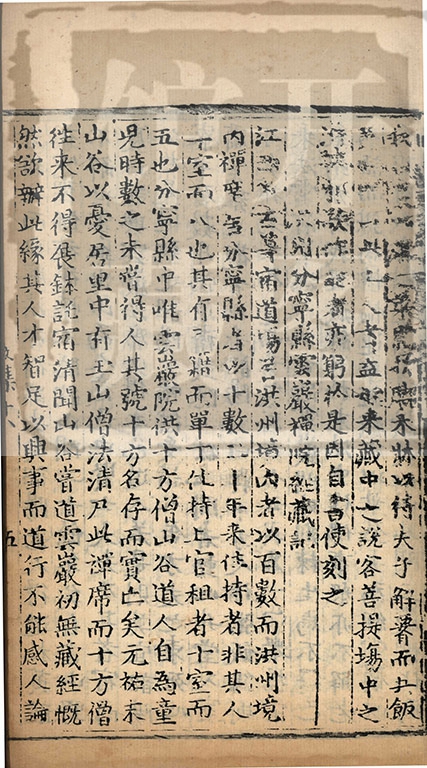 以待夫子解署而丘飯
來藏中之說客菩提場中之
者亦窮於是因自書使刻之
分寧縣雲巖禪院經藏記
江西多古尊宿道場居洪州境內者以百數而洪州境
內禪席居分寧縣者以十數二十年來住持者非其人
十室而八也其有戶籍而單丁住持上官租者十室而
五也分寧縣中唯雲巖院供十方僧山谷道人自為童
兒時數之未嘗得人其號十方名存而實亡矣元祐末
山谷以憂居里中有玉山僧法清尸此禪席而十方僧
往來不得展鉢託宿清聞山谷嘗道雲巖初無藏經慨
然欲辦此緣其人才智足以興事而道行不能感人論
集十八
五